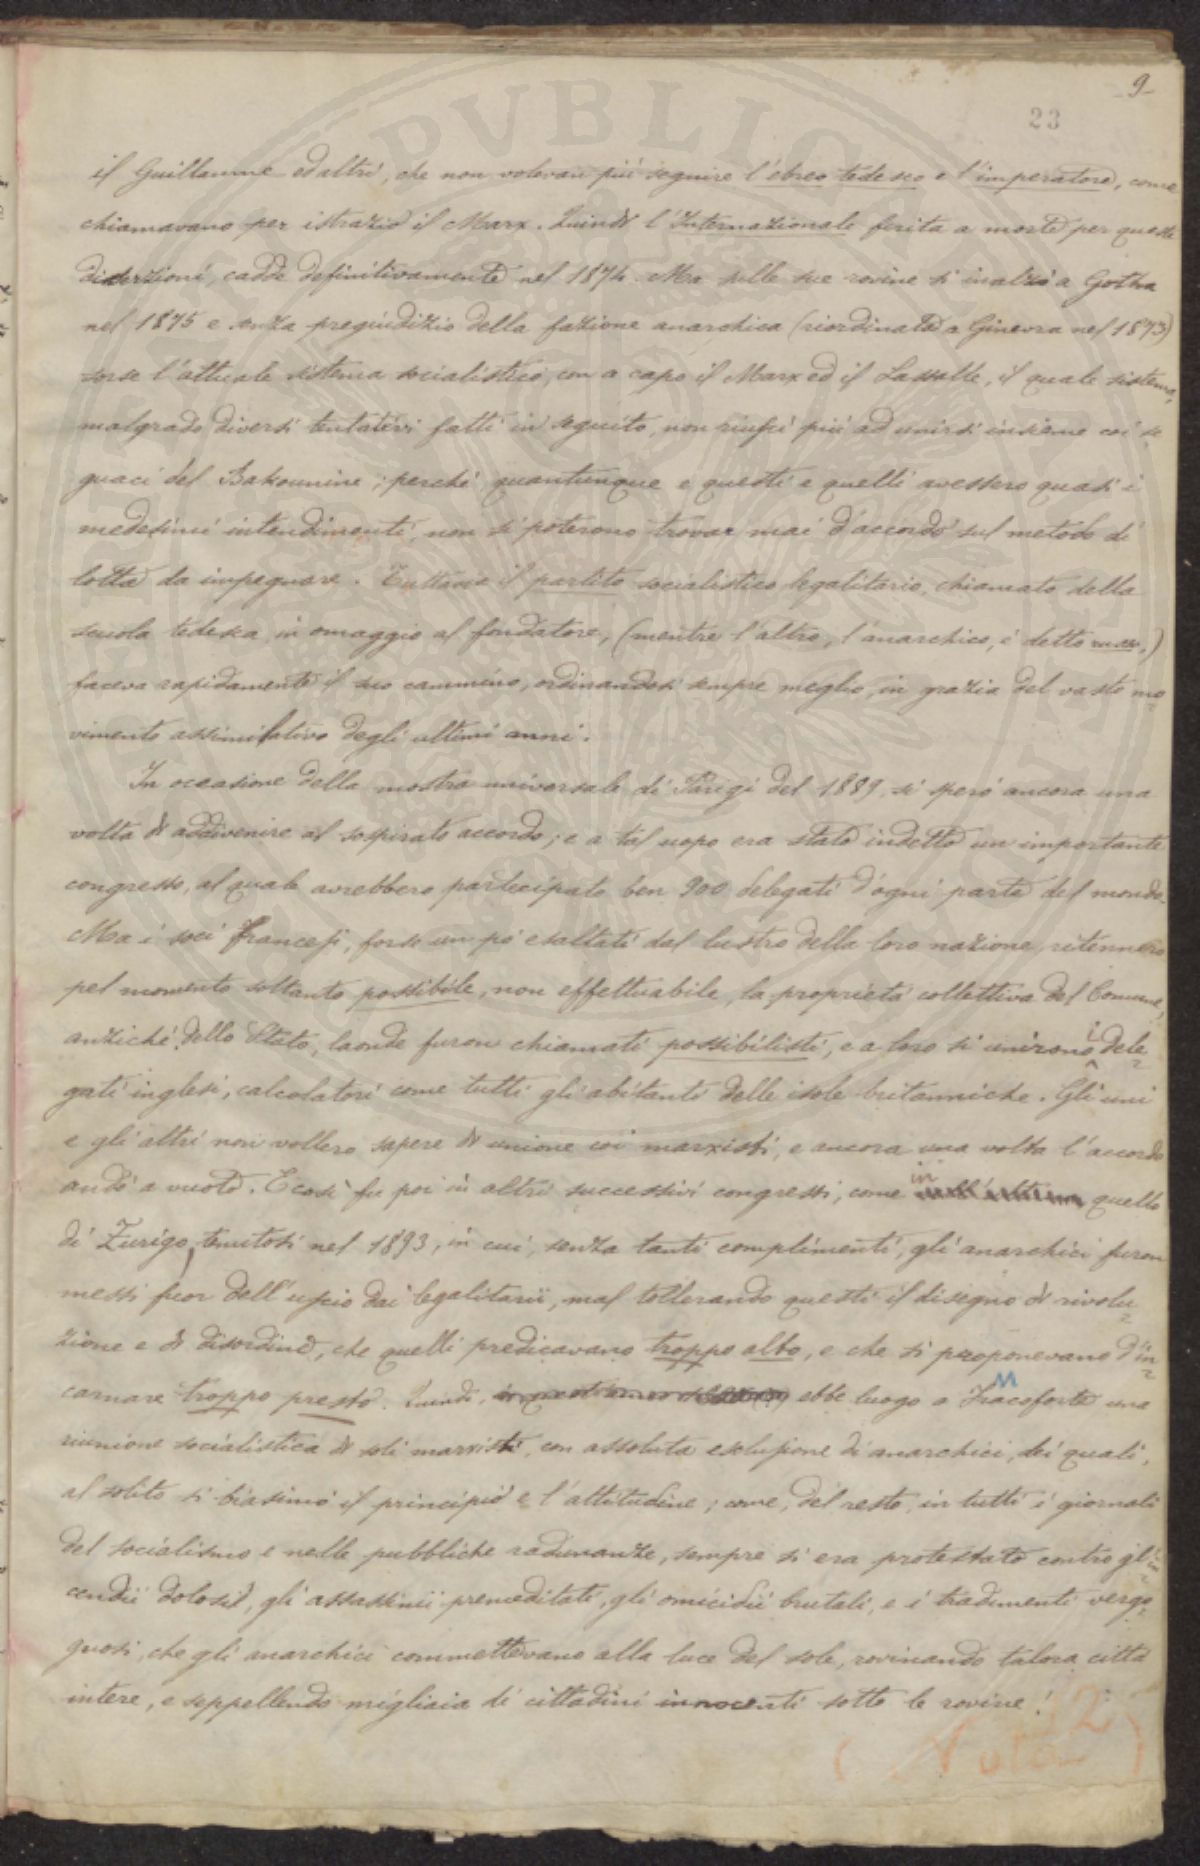 -9-
23
il Guillaume ed altri, che non volevan più seguire l'ebreo tedesco e l'imperatore, come
chiamavano per istrazio il Marx. Quindi l'Internazionale ferita a morte per queste
diserzioni, cadde definitivamente nel 1874. Ma sulle sue rovine si inalzò a Gotha
nel 1875 e senza pregiudizio della fazione anarchica (riordinata a Ginevra nel 1873)
sorse l'attuale sistema socialistico, con a capo il Marx ed il Lassalle, il quale sistema,
malgrado diversi tentativi fatti in seguito, non riuscì più ad unirsi insieme coi se
guaci del Bakounine; perché quantunque e questi e quelli avessero quasi i
medesimi intendimenti, non si poterono trovar mai d'accordo sul metodo di
lotta da impegnare. Tuttavia il partito socialistico legalitario, chiamato della
scuola tedesca in omaggio al fondatore, (mentre l'altro, l'anarchico, è detto russo,)
faceva rapidamente il suo cammino, ordinandosi sempre meglio, in grazia del vasto mo
vimento assimilativo degli ultimi anni.
In occasione della mostra universale di Parigi del 1889, si sperò ancora una
volta di addivenire al sospirato accordo; e a tal uopo era stato indetto un importante
congresso, al quale avrebbero partecipato ben 900 delegati d'ogni parte del mondo.
Ma i soci francesi, forse un pò esaltati dal lustro della loro nazione, ritennero
pel momento soltanto possibile, non effettuabile, la proprietà collettiva del Comune,
anziché dello Stato, laonde furon chiamati possibilisti, e a loro si unirono i dele
gati inglesi, calcolatori come tutti gli abitanti delle isole britanniche. Gli uni
e gli altri non vollero sapere di unione coi marxisti, e ancora una volta l'accordo
andò a vuoto. E così fu poi in altri successivi congressi, come in quello
di Zurigo, tenutosi nel 1893, in cui, senza tanti complimenti, gli anarchici furon
messi fuor dell'uscio dai legalitarii, mal tollerando questi il disegno di rivolu
zione e di disordine, che quelli predicavano troppo alto, e che si proponevano d'in
carnare troppo presto. Quindi, ebbe luogo a Fracoforte una
N
riunione socialistica di soli marxisti, con assoluta esclusione di anarchici, dei quali,
al solito si biasimò il principio e l'attitudine; come, del resto, in tutti i giornali
del socialismo e nelle pubbliche radunanze, sempre si era protestato contro gl'in
cendii dolosi, gli assassinii premeditati, gli omicidii brutali, e i tradimenti vergo
gnosi, che gli anarchici commettevano alla luce del sole, rovinando talora città
intere, e seppellendo migliaia di cittadini innocenti sotto le rovine!
(Nota 12)